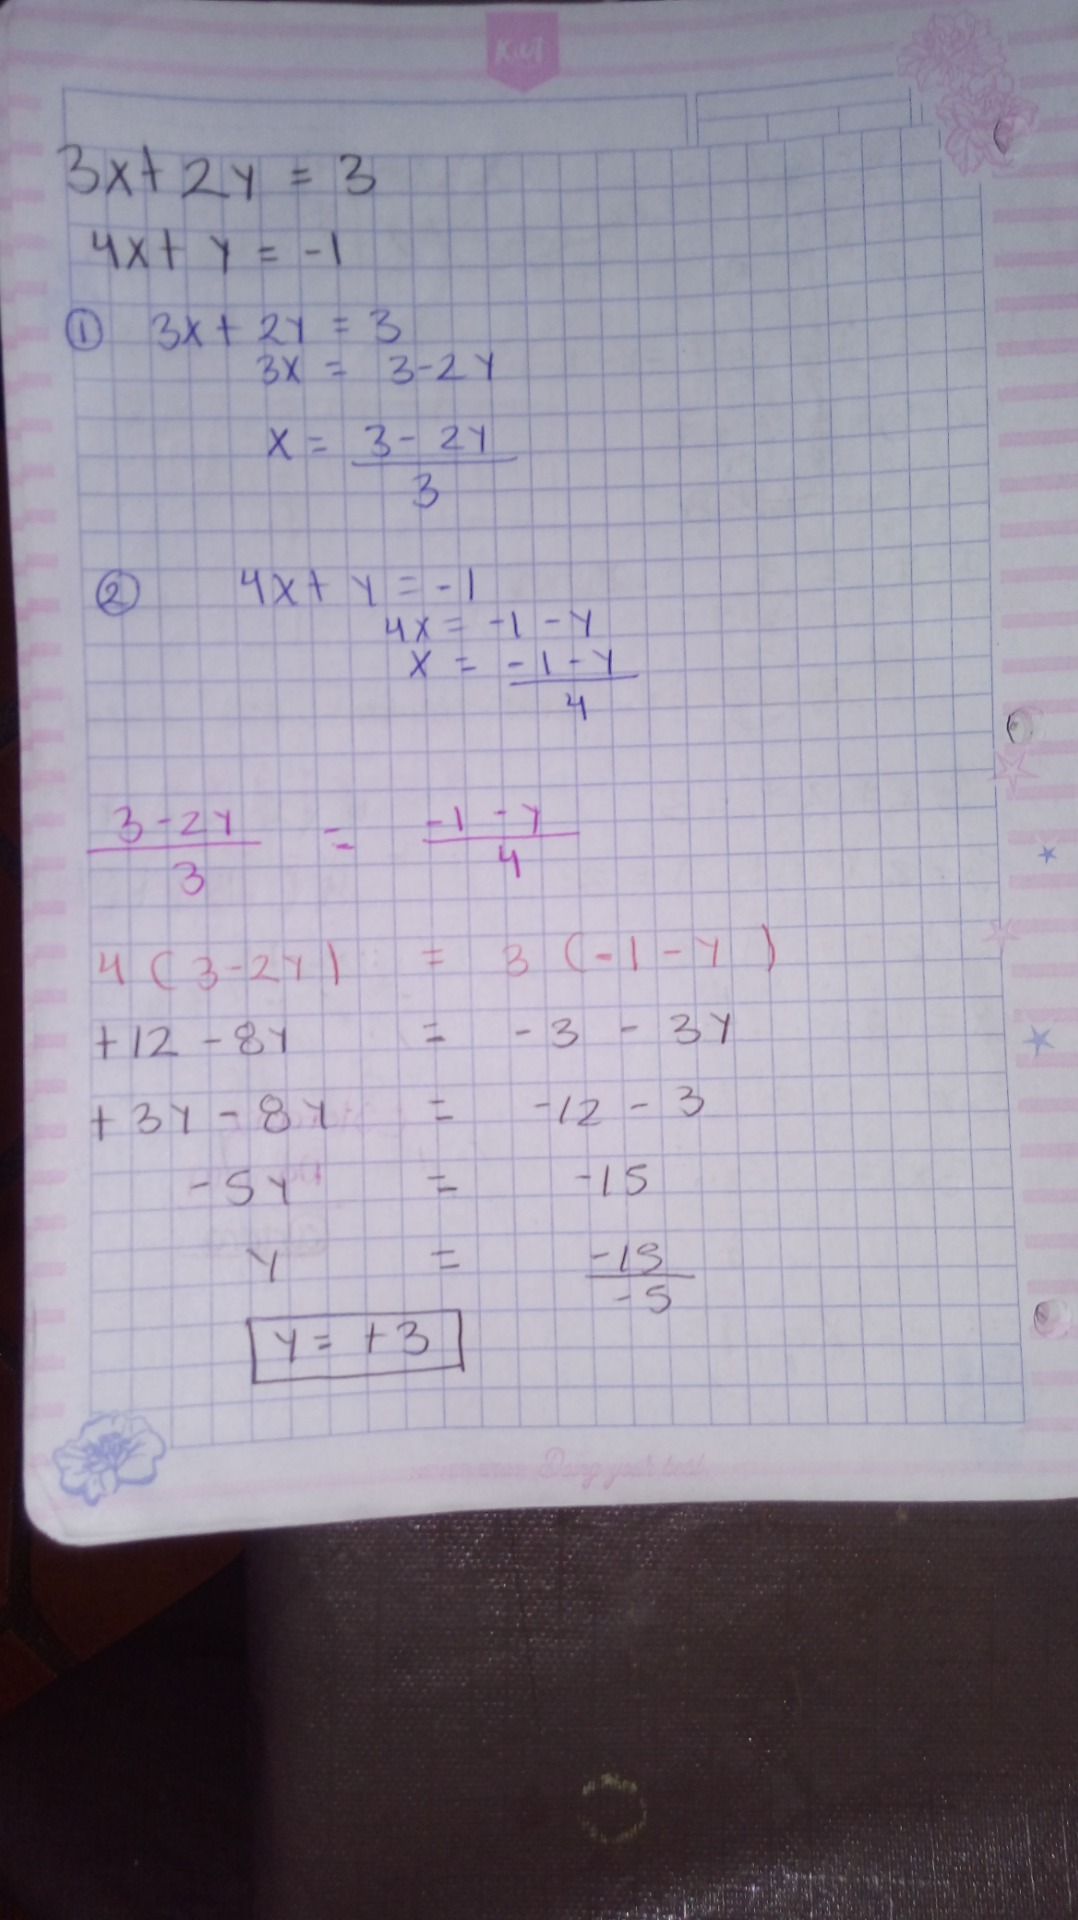 Kiut
3x + 2y = 3
4x + y = -1
① 3x + 2y = 3
3x = 3 - 2y
x = 3 - 2y
3
② 4x + y = -1
4x = -1 - y
x = -1 - y
4
3 - 2y = -1 - y
3 4
4 ( 3 - 2y ) = 3 ( -1 - y )
+12 - 8y = -3 - 3y
+3y - 8y = -12 - 3
-5y = -15
y = -15
-5
y = +3